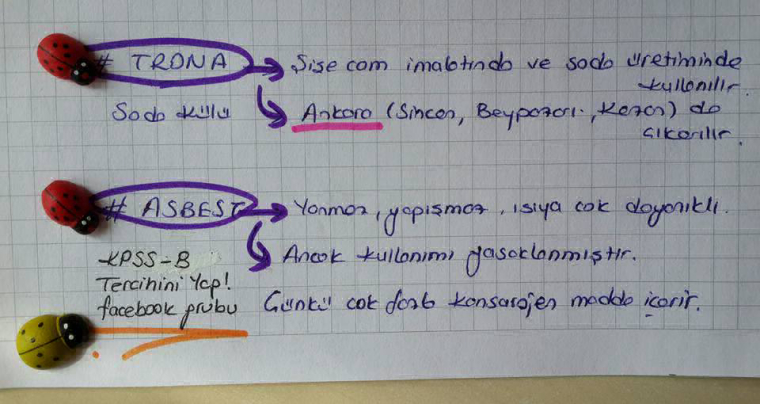 # TRONA → Şişe cam imalatında ve soda üretiminde
kullanılır.
Soda külü Ankara (Sincan, Beypazarı, Kazan) da
çıkarılır.
# ASBEST → Yanmaz, yapışmaz, ısıya çok dayanıklı.
Ancak kullanımı yasaklanmıştır.
KPSS-B
Tercihini Yap!
facebook grubu
Çünkü çok fazla kansarojen madde içerir.